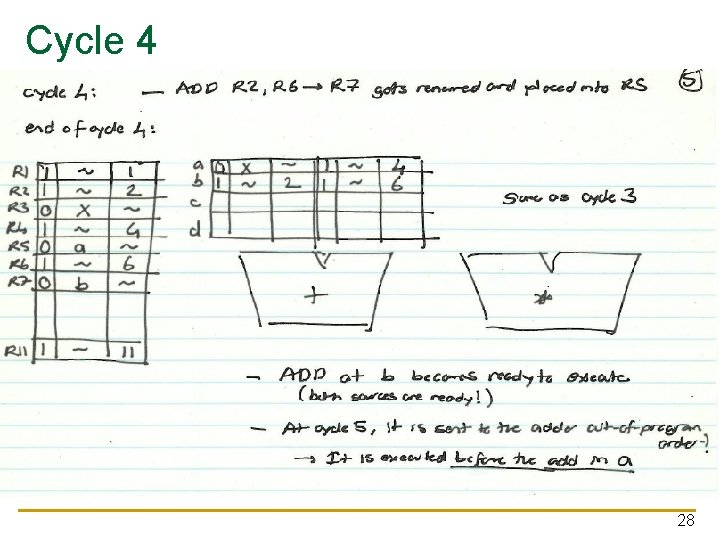 Cycle 4
cycle 4: — ADD R2, R6 → R7 gets renamed and placed into RS
5
end of cycle 4:
R1 1 ~ 1
R2 1 ~ 2
R3 0 x ~
R4 1 ~ 4
R5 0 a ~
R6 1 ~ 6
R7 0 b ~
R11 1 ~ 11
a 0 x ~ 1 ~ 4
b 1 ~ 2 1 ~ 6
c
d
Same as cycle 3
+
*
— ADD at b becomes ready to execute
(both sources are ready!)
— At cycle 5, it is sent to the adder out-of-program
order!
→ It is executed before the add in a
28